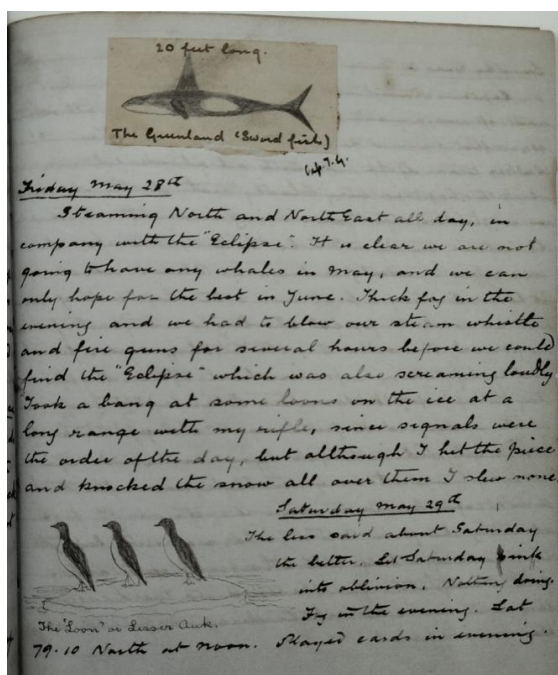 20 feet long.
The Greenland (Sword fish)
Friday May 28th
Steaming North and North East all day, in
company with the "Eclipse". It is clear we are not
going to have any whales in May, and we can
only hope for the best in June. Thick fog in the
evening and we had to blow our steam whistle
and fire guns for several hours before we could
find the "Eclipse" which was also screaming loudly
Took a bang at some loons on the ice at a
long range with my rifle, since signals were
the order of the day, but although I hit the piece
and knocked the snow all over them I slew none
Saturday May 29th
The less said about Saturday
the better. Let Saturday sink
into oblivion. Nothing doing.
Fog in the evening. Lat
The 'Loon' or Lesser Auk.
79.10 North at noon. Played cards in evening.